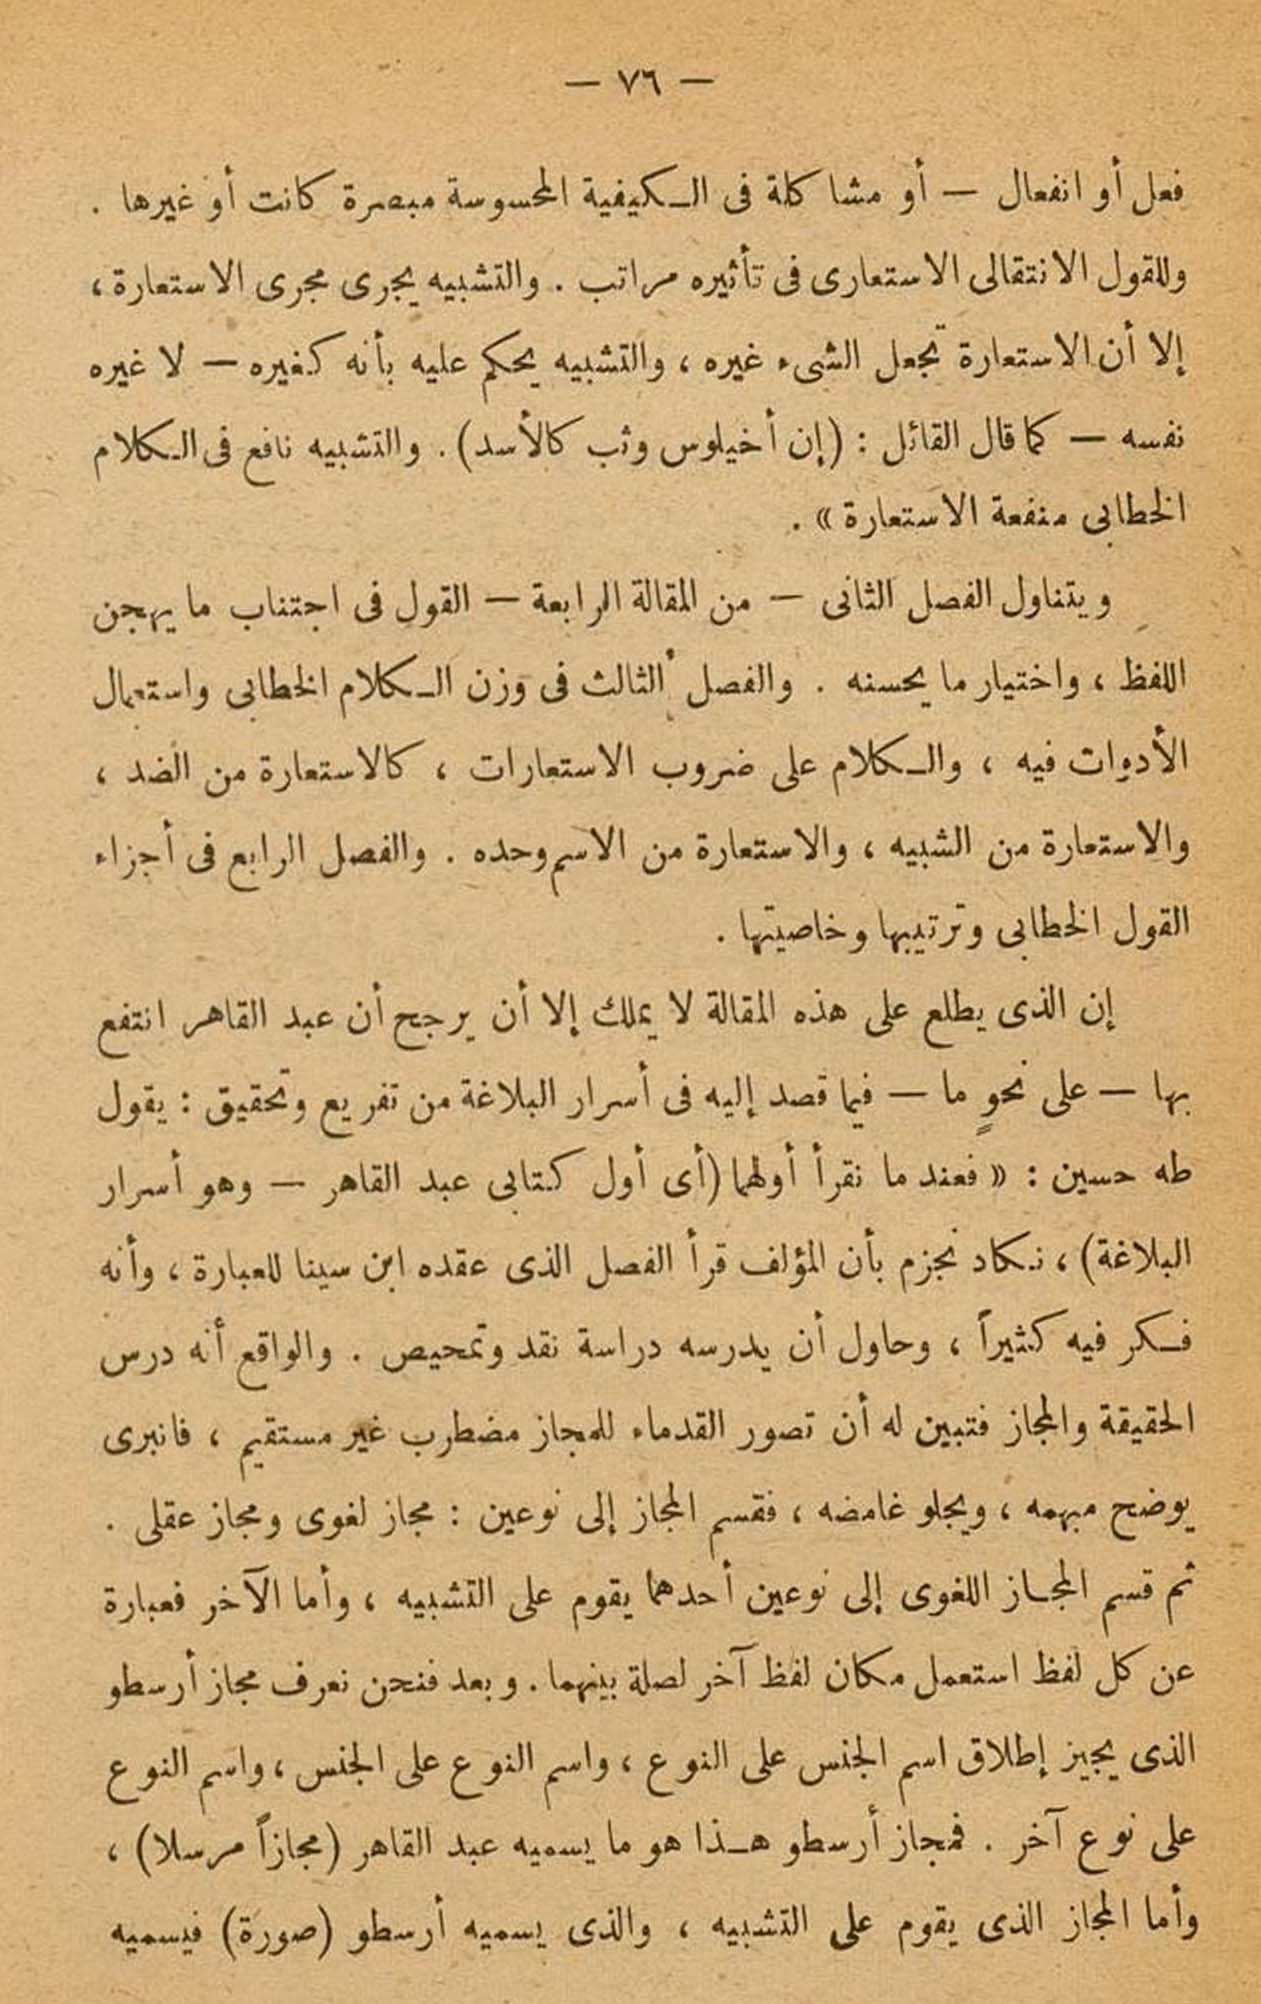 — ٧٦ —
فعل أو انفعال — أو مشاكلة فى الـكيفية المحسوسة مبصرة كانت أو غيرها .
وللقول الانتقالى الاستعارى فى تأثيره مراتب . والتشبيه يجرى مجرى الاستعارة ،
إلا أن الاستعارة تجعل الشىء غيره ، والتشبيه يحكم عليه بأنه كغيره — لا غيره
نفسه — كما قال القائل : (إن أخيلوس وثب كالأسد) . والتشبيه نافع فى الـكلام
الخطابى منفعة الاستعارة » .
ويتناول الفصل الثانى — من المقالة الرابعة — القول فى اجتناب ما يهجن
اللفظ ، واختيار ما يحسنه . والفصل الثالث فى وزن الـكلام الخطابى واستعمال
الأدوات فيه ، والـكلام على ضروب الاستعارات ، كالاستعارة من الضد ،
والاستعارة من الشبيه ، والاستعارة من الاسم وحده . والفصل الرابع فى أجزاء
القول الخطابى وترتيبها وخاصيتها .
إن الذى يطلع على هذه المقالة لا يملك إلا أن يرجح أن عبد القاهر انتفع
بها — على نحوٍ ما — فيما قصد إليه فى أسرار البلاغة من تفريع وتحقيق : يقول
طه حسين : « فعند ما نقرأ أولهما (أى أول كتابى عبد القاهر — وهو أسرار
البلاغة) ، نـكاد نجزم بأن المؤلف قرأ الفصل الذى عقده ابن سينا للعبارة ، وأنه
فـكر فيه كثيراً ، وحاول أن يدرسه دراسة نقد وتمحيص . والواقع أنه درس
الحقيقة والمجاز فتبين له أن تصور القدماء للمجاز مضطرب غير مستقيم ، فانبرى
يوضح مبهمه ، ويجلو غامضه ، فقسم المجاز إلى نوعين : مجاز لغوى ومجاز عقلى .
ثم قسم المجـاز اللغوى إلى نوعين أحدهما يقوم على التشبيه ، وأما الآخر فعبارة
عن كل لفظ استعمل مكان لفظ آخر لصلة بينهما . وبعد فنحن نعرف مجاز أرسطو
الذى يجيز إطلاق اسم الجنس على النوع ، واسم النوع على الجنس ، واسم النوع
على نوع آخر . فمجاز أرسطو هـذا هو ما يسميه عبد القاهر (مجازاً مرسلا) ،
وأما المجاز الذى يقوم على التشبيه ، والذى يسميه أرسطو (صورة) فيسميه